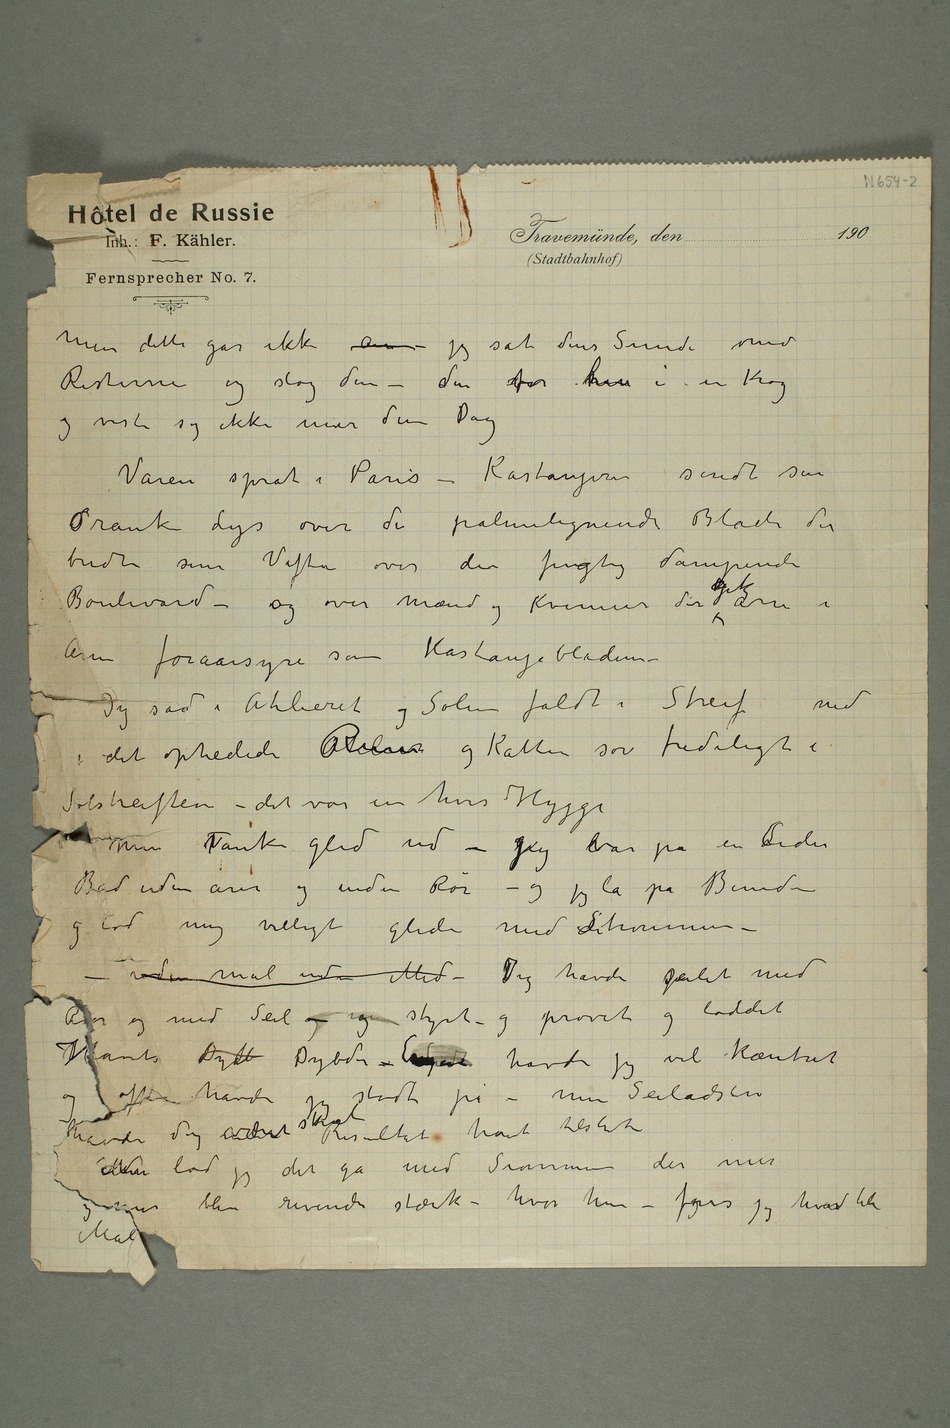 N 654-2
Hôtel de Russie
Inh.: F. Kähler.
Fernsprecher No. 7.
Travemünde, den 190
(Stadtbahnhof)
men dette gar ikke jeg sat dens Snude mod
Resterne og slog den – den for i en Krog
og viste sig ikke mer den Dag
Våren sprat i Paris – Kastanjerne sendt sin
Prank Lys over de palmelignende Blade der
bredte sine Vifter over den fugtig dampende
Boulevard – og over mænd og Kvinner der gik arm i
Arm foraarsyre som Kastanjebladene –
Jeg sad i Atelieret og Solen faldt i Streif ned
i det ophedede og Katten sov fredeligt i
Solstreiften – det var en hvis Hygge
min Tanke gled ud – jeg var på en Leder
Båd uden årer og uden Rór – og jeg lå på Bunden
og lod mig villigt glide med Strommen –
– uden mål uden Med – Jeg havde seilet med
Årer og med Seil – og styrt – og provet og loddet
Havets Dybt Dybder – havde jeg vel Kæntret
og ofte havde jeg stødt på – min Seiladsen
havde dog været skral Resultat havt tilslut
lod jeg det gå med Strommen der mer
og mer blev rivende stærk – hvor hen – føres jeg hvad blir
Mål